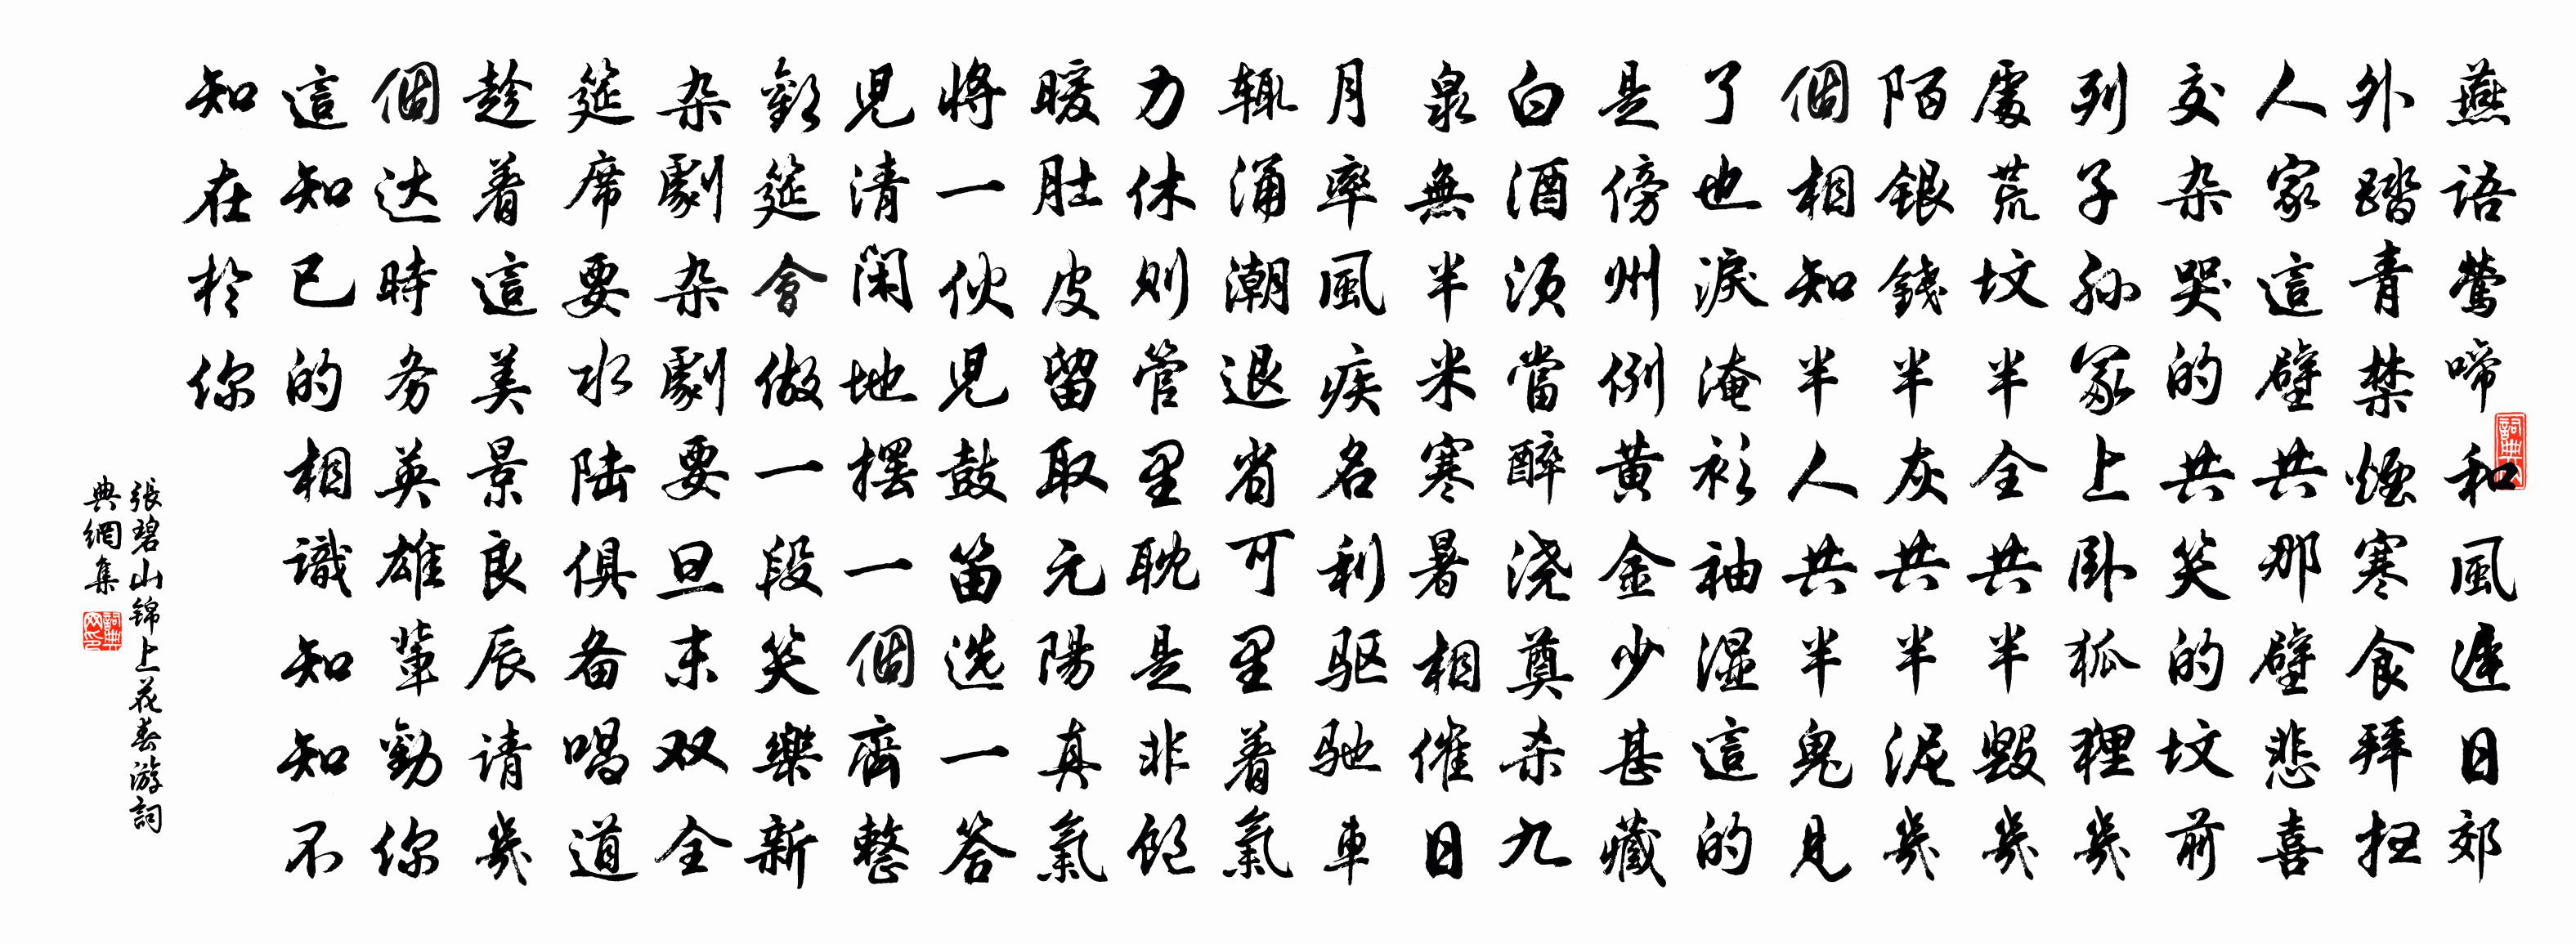 燕語鶯啼和風遲日郊
外踏青禁煙寒食拜扫
人家這壁共那壁悲喜
交杂哭的共笑的坟前
列子孙冢上卧狐狸幾
處荒坟半全共半毁幾
陌銀錢半灰共半泥幾
個相知半人共半鬼見
了也淚淹衫袖湿這的
是傍州例黄金少甚藏
白酒须當醉浇奠杀九
泉無半米寒暑相催日
月率風疾名利驱驰車
辄涌潮退省可里着氣
力休则管里耽是非饱
暖肚皮留取元陽真氣
将一伙兒鼓笛选一答
兒清闲地摆一個齊整
歡筵會做一段笑樂新
杂劇杂劇要旦末双全
筵席要水陆俱备唱道
趁着這美景良辰请幾
個达時务英雄輩勸你
這知已的相識知知不
知在於你
張碧山锦上花春游詞
典網集
詞典
詞典網印